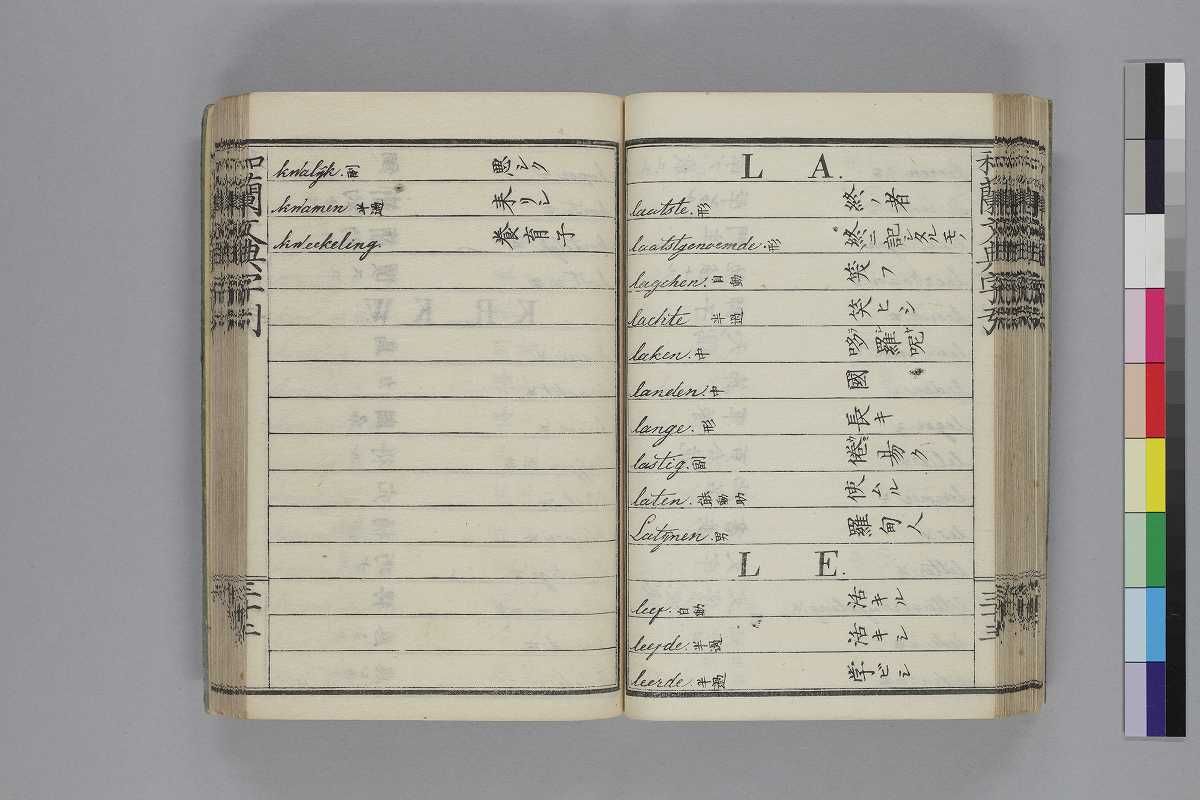 kwalijk. 副 悪シク
kwamen 半過 来リシ
kweekeling. 養育子
L A.
laatste. 形 終ノ者
laatstgenoemde 形 終ニ記シタルモノ
lagchen. 自動 笑フ
lachte 半過 笑ヒシ
laken. 中 哆羅呢
landen. 中 國
lange. 形 長キ
lastig. 副 倦易ク
laten. 能動助 使ムル
Latijnen. 男 羅甸人
L E.
leef. 自動 活キル
leefde. 半過 活キシ
leerde. 半過 学ビシ